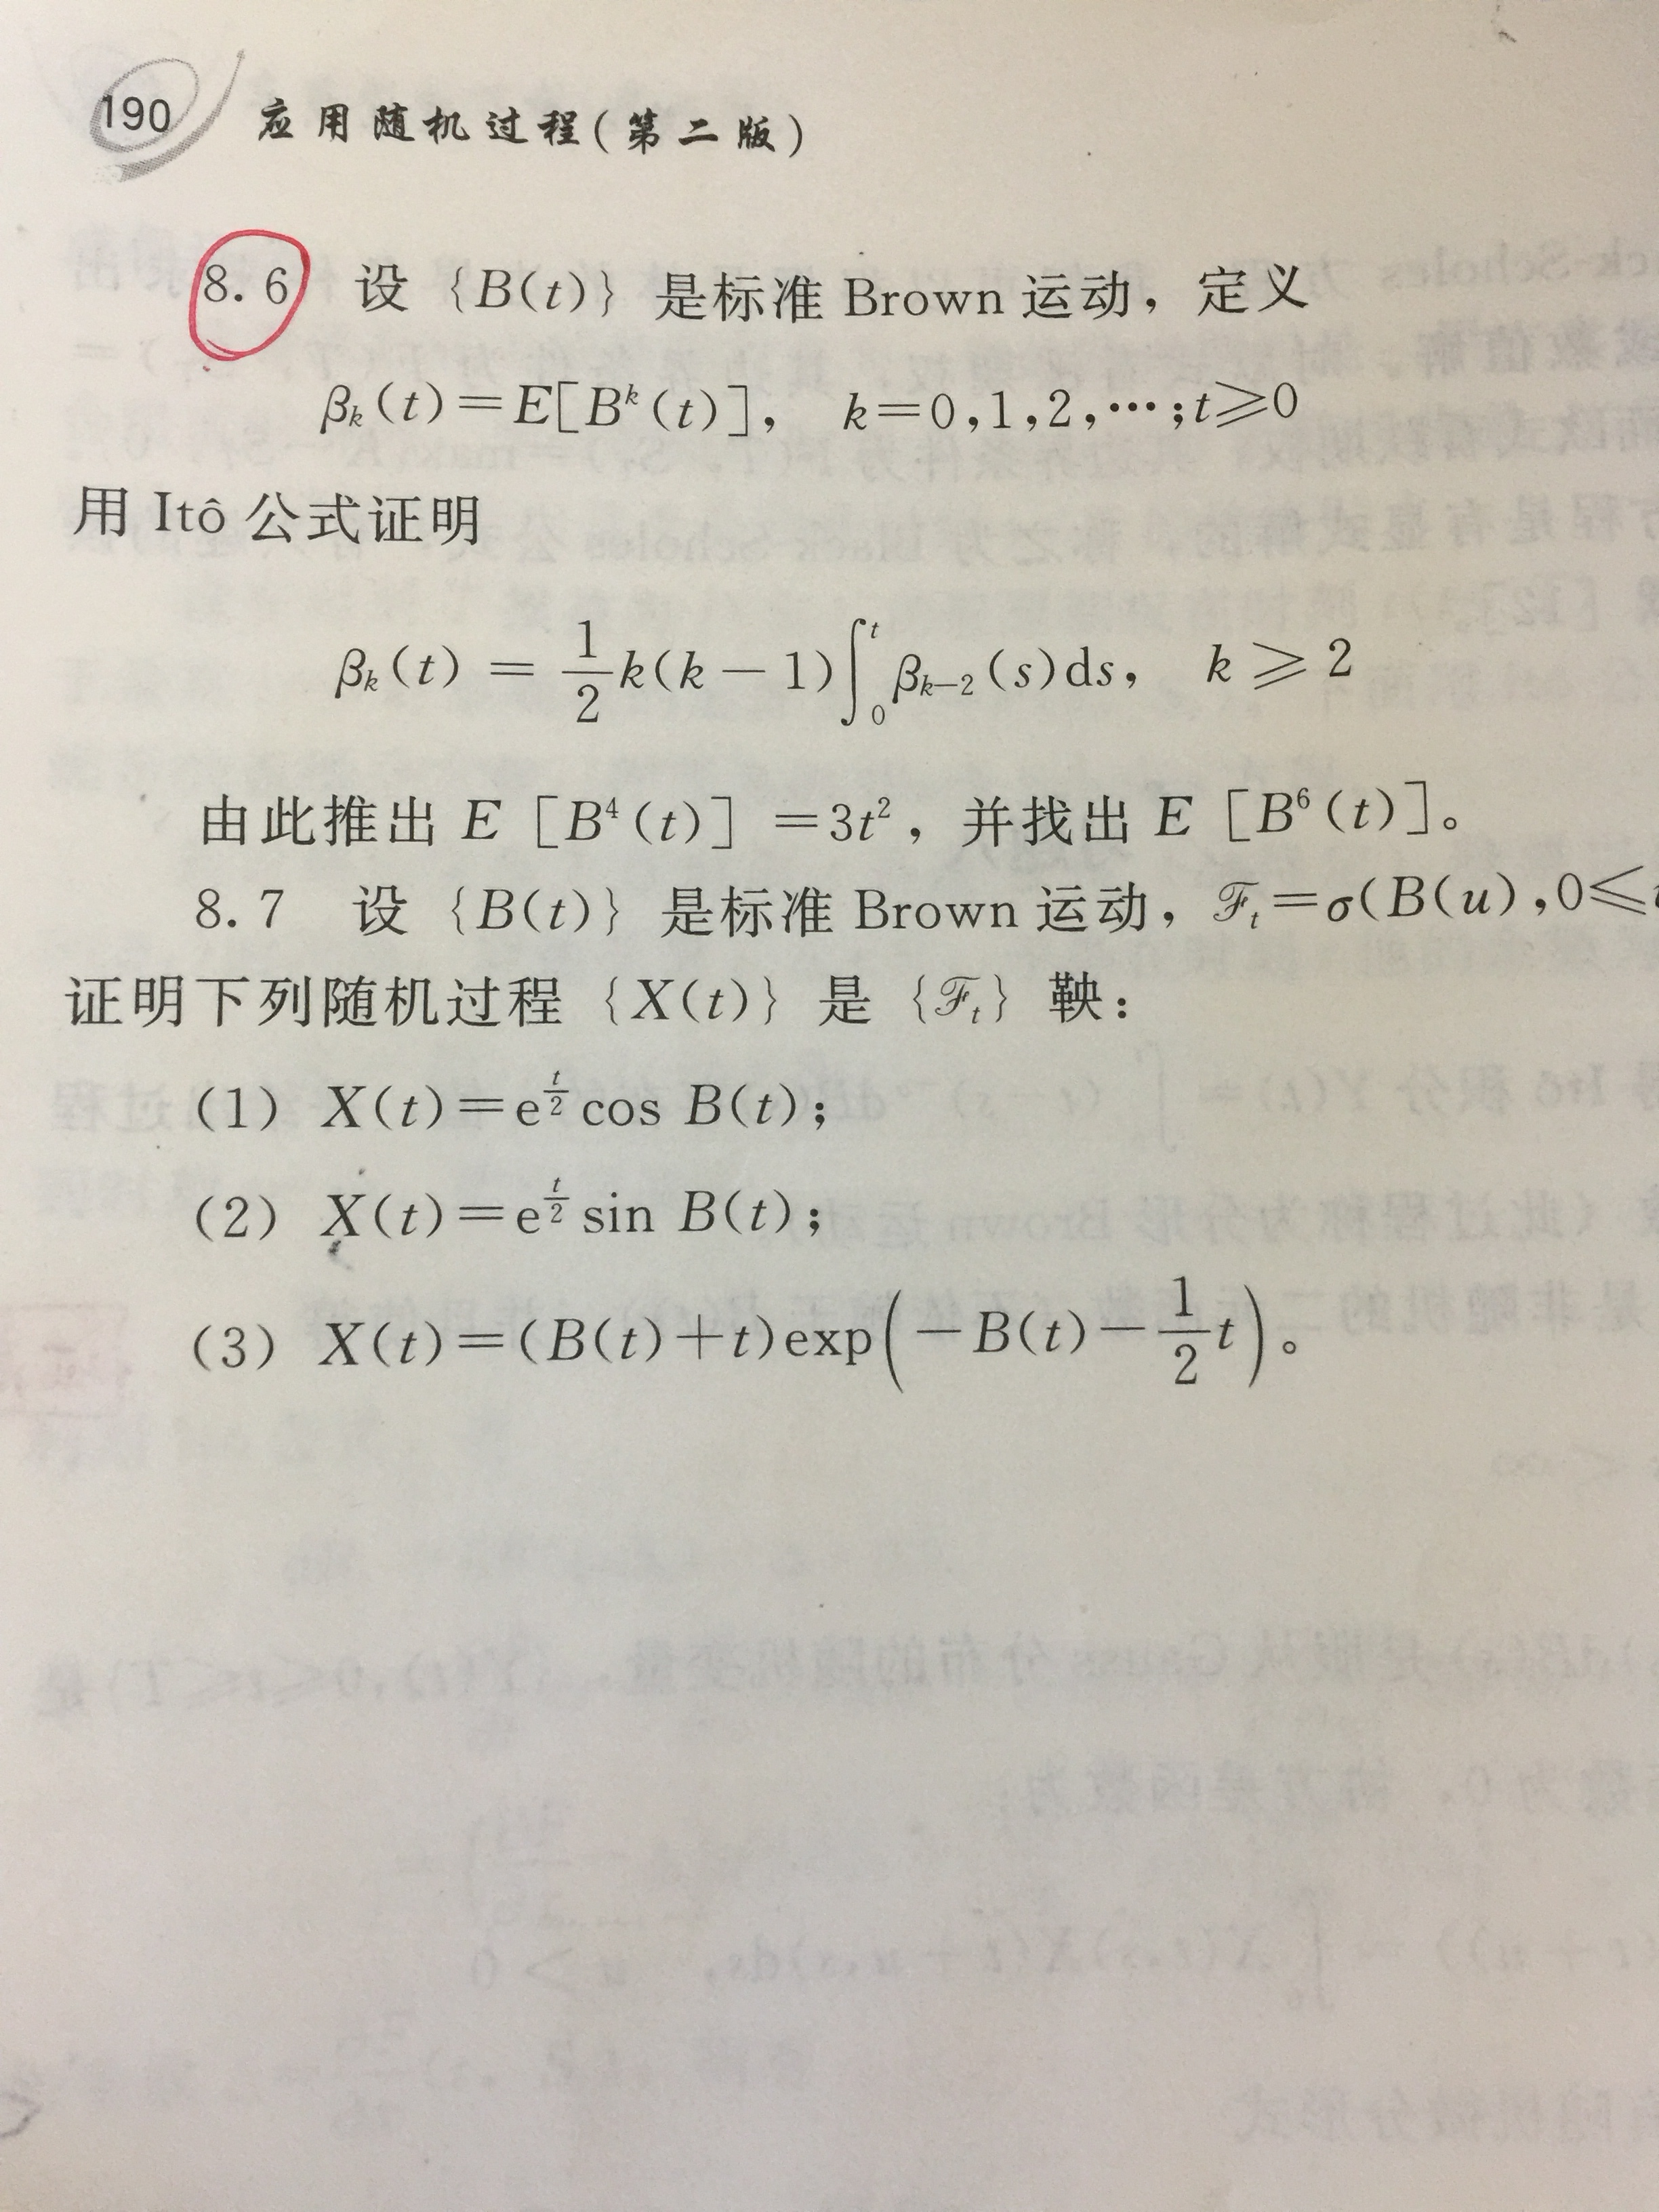 190 应用随机过程(第二版)
8.6 设 {B(t)} 是标准 Brown 运动，定义
βₖ(t)=E[Bᵏ(t)], k=0,1,2,…;t≥0
用 Itô 公式证明
βₖ(t) = 1/2 k(k-1)∫₀ᵗ βₖ₋₂(s)ds, k≥2
由此推出 E [B⁴(t)] =3t²，并找出 E [B⁶(t)]。
8.7 设 {B(t)} 是标准 Brown 运动，ℱₜ=σ(B(u),0≤
证明下列随机过程 {X(t)} 是 {ℱₜ} 鞅：
(1) X(t)=e^(t/2) cos B(t);
(2) X(t)=e^(t/2) sin B(t);
(3) X(t)=(B(t)+t)exp(-B(t)-1/2 t)。